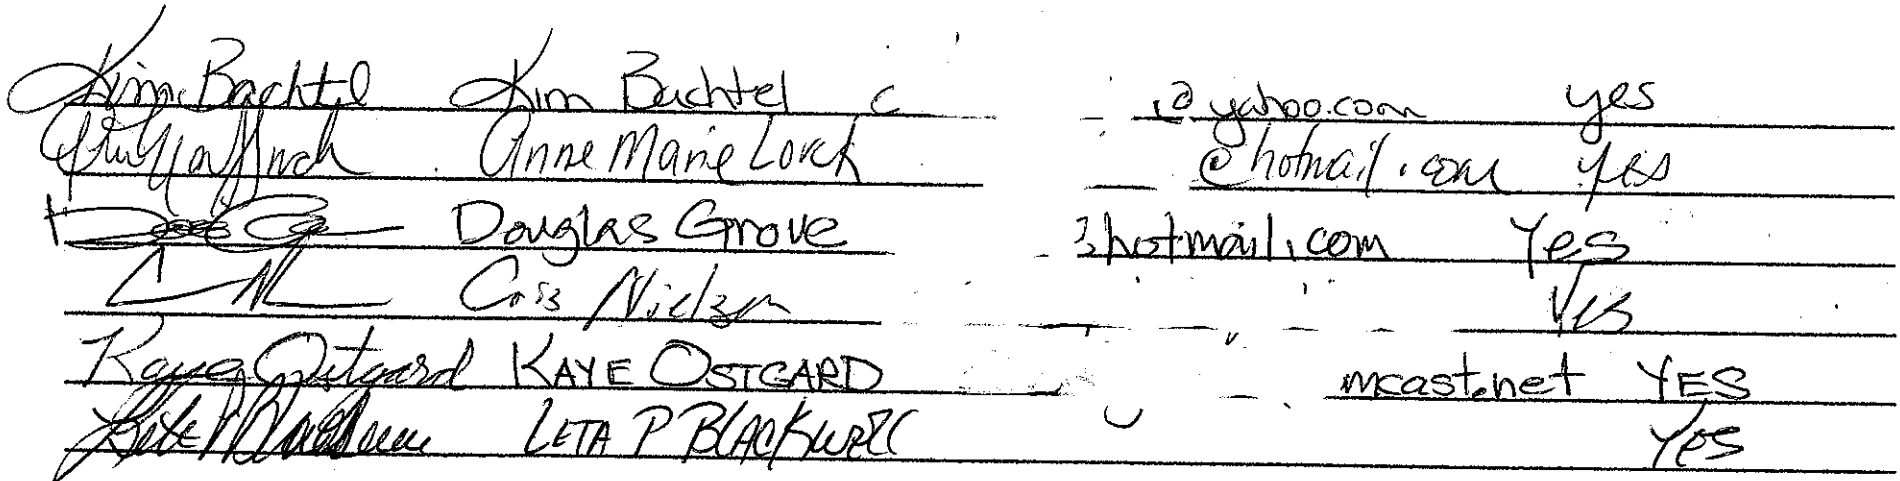 Kim Bachtel Kim Bachtel c @yahoo.com yes
Anne Marie Lorck @hotmail.com yes
Douglas Grove hotmail.com Yes
Nielsen Yes
Kaye Ostgard KAYE OSTGARD mcast.net YES
LETA P BLACKWELL Yes